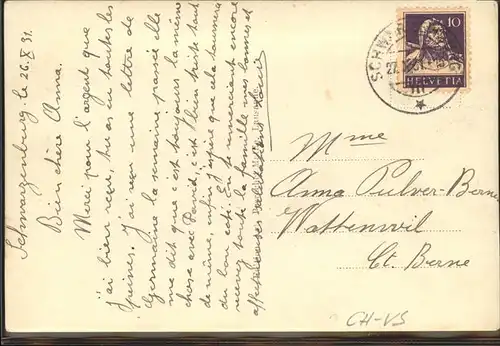 Schwarzenburg le 26.X 31.
Bien chère Anna.
Merci pour l'argent que
j'ai bien reçu, tu as eu toutes les
peines. J'ai reçu une lettre de
Germaine la semaine passée elle
me dit que c'est toujours la même
chose avec David, c'est bien triste tout
de même, enfin j'espère que cela tournera
du bon côté. En te remerciant encore
recevez toute la famille mes bonnes et
affectueuses
SCHWARZENBURG
27.
10
HELVETIA
Mme
Anna Pulver-Berne
Wattenwil
Ct. Berne
CH-VS